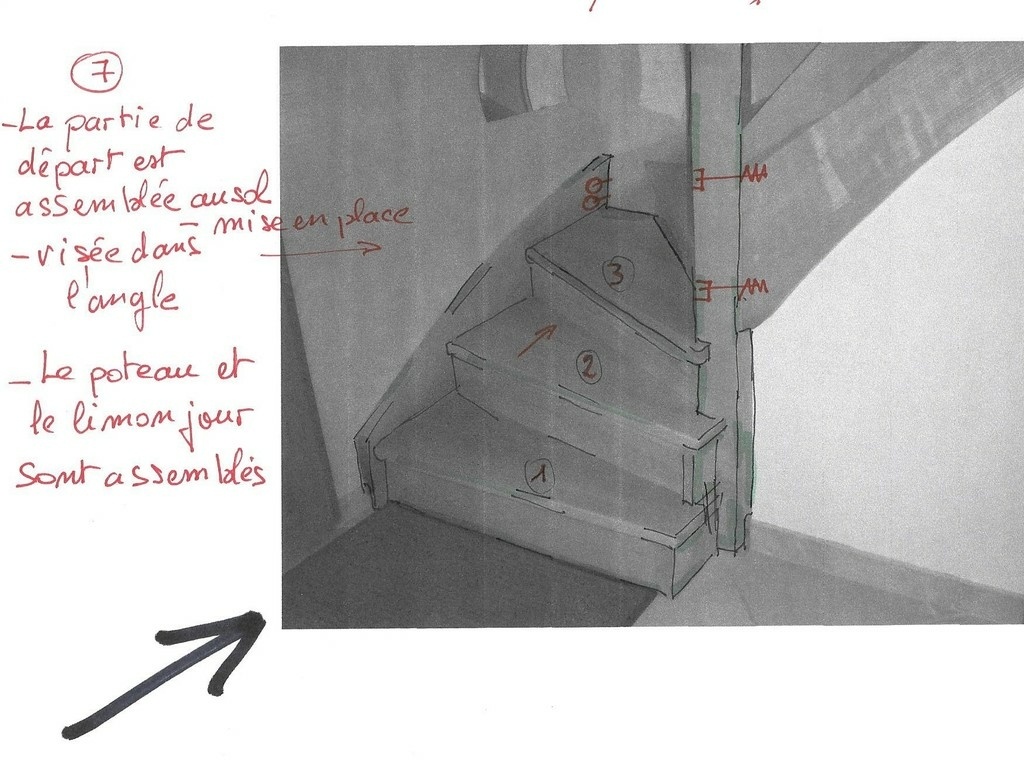 7
-La partie de
départ est
assemblée au sol
- mise en place
- visée dans
l'angle
- Le poteau et
le limon jour
sont assemblés
3
2
1